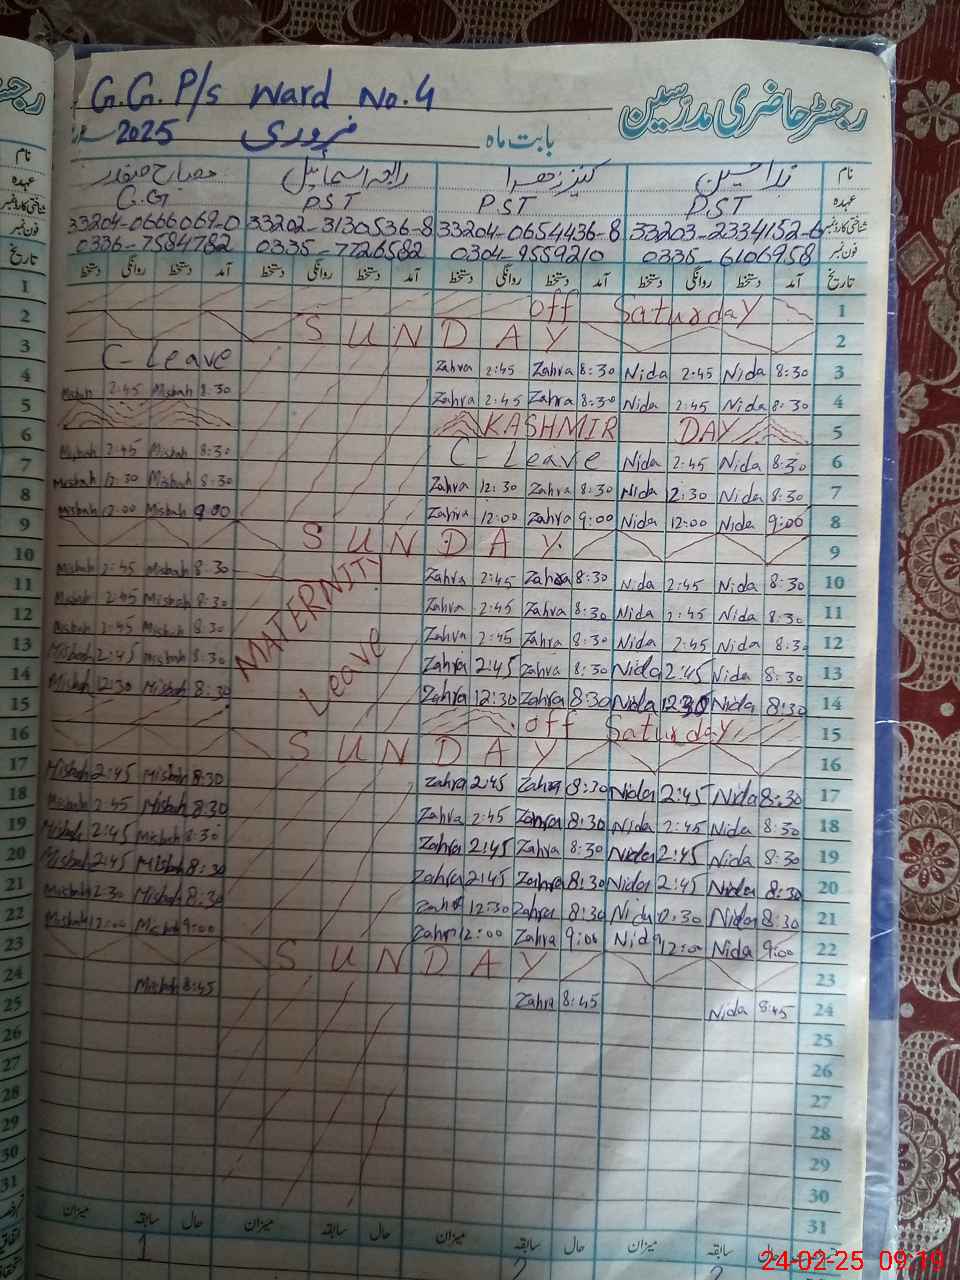 G.G. P/s Ward No.4
رجسٹر حاضری مدرسین
بابت ماہ فروری 2025
نام ندا حسین کنیز زھرا رابعہ اسماعیل مصباح صفدر
عہدہ PST PST PST G.G
شناختی کارڈ نمبر 33203-2334152-6 33204-0654436-8 33202-3130536-8 33204-0666069-0
فون نمبر 0335-6106958 0304-9559210 0335-7726582 0336-7584782
تاریخ آمد دستخط روانگی دستخط آمد دستخط روانگی دستخط آمد دستخط روانگی دستخط آمد دستخط روانگی دستخط
off Saturday 1
SUNDAY 2
C-Leave Zahra 2:45 Zahra 8:30 Nida 2:45 Nida 8:30 3
Misbah 2:45 Misbah 8:30 Zahra 2:45 Zahra 8:30 Nida 2:45 Nida 8:30 4
KASHMIR DAY 5
Misbah 2:45 Misbah 8:30 C-Leave Nida 2:45 Nida 8:30 6
Misbah 12:30 Misbah 8:30 Zahra 12:30 Zahra 8:30 Nida 12:30 Nida 8:30 7
Misbah 12:00 Misbah 9:00 Zahra 12:00 Zahra 9:00 Nida 12:00 Nida 9:00 8
SUNDAY 9
Misbah 2:45 Misbah 8:30 Zahra 2:45 Zahra 8:30 Nida 2:45 Nida 8:30 10
Misbah 2:45 Misbah 8:30 Zahra 2:45 Zahra 8:30 Nida 2:45 Nida 8:30 11
MATERNITY Leave
Misbah 2:45 Misbah 8:30 Zahra 2:45 Zahra 8:30 Nida 2:45 Nida 8:30 12
Misbah 2:45 Misbah 8:30 Zahra 2:45 Zahra 8:30 Nida 2:45 Nida 8:30 13
Misbah 12:30 Misbah 8:30 Zahra 12:30 Zahra 8:30 Nida 12:30 Nida 8:30 14
off Saturday 15
SUNDAY 16
Misbah 2:45 Misbah 8:30 Zahra 2:45 Zahra 8:30 Nida 2:45 Nida 8:30 17
Misbah 2:45 Misbah 8:30 Zahra 2:45 Zahra 8:30 Nida 2:45 Nida 8:30 18
Misbah 2:45 Misbah 8:30 Zahra 2:45 Zahra 8:30 Nida 2:45 Nida 8:30 19
Misbah 2:45 Misbah 8:30 Zahra 2:45 Zahra 8:30 Nida 2:45 Nida 8:30 20
Misbah 12:30 Misbah 8:30 Zahra 12:30 Zahra 8:30 Nida 12:30 Nida 8:30 21
Misbah 12:00 Misbah 9:00 Zahra 12:00 Zahra 9:00 Nida 12:00 Nida 9:00 22
SUNDAY 23
Misbah 8:45 Zahra 8:45 Nida 8:45 24
25
26
27
28
29
30
31
حال سابقہ میزان حال سابقہ میزان حال سابقہ میزان حال سابقہ میزان
1 2 2
24-02-25 09:19